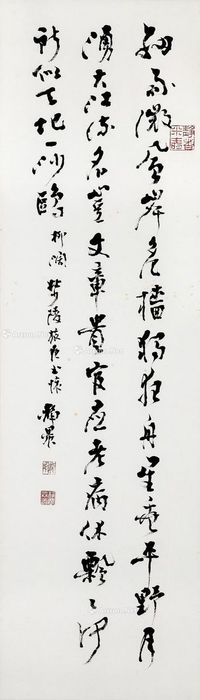 细草微风岸危樯独夜舟星垂平野月
涌大江流名岂文章著官应老病休飘々何
所似天地一沙鸥
杜陵旅夜书怀